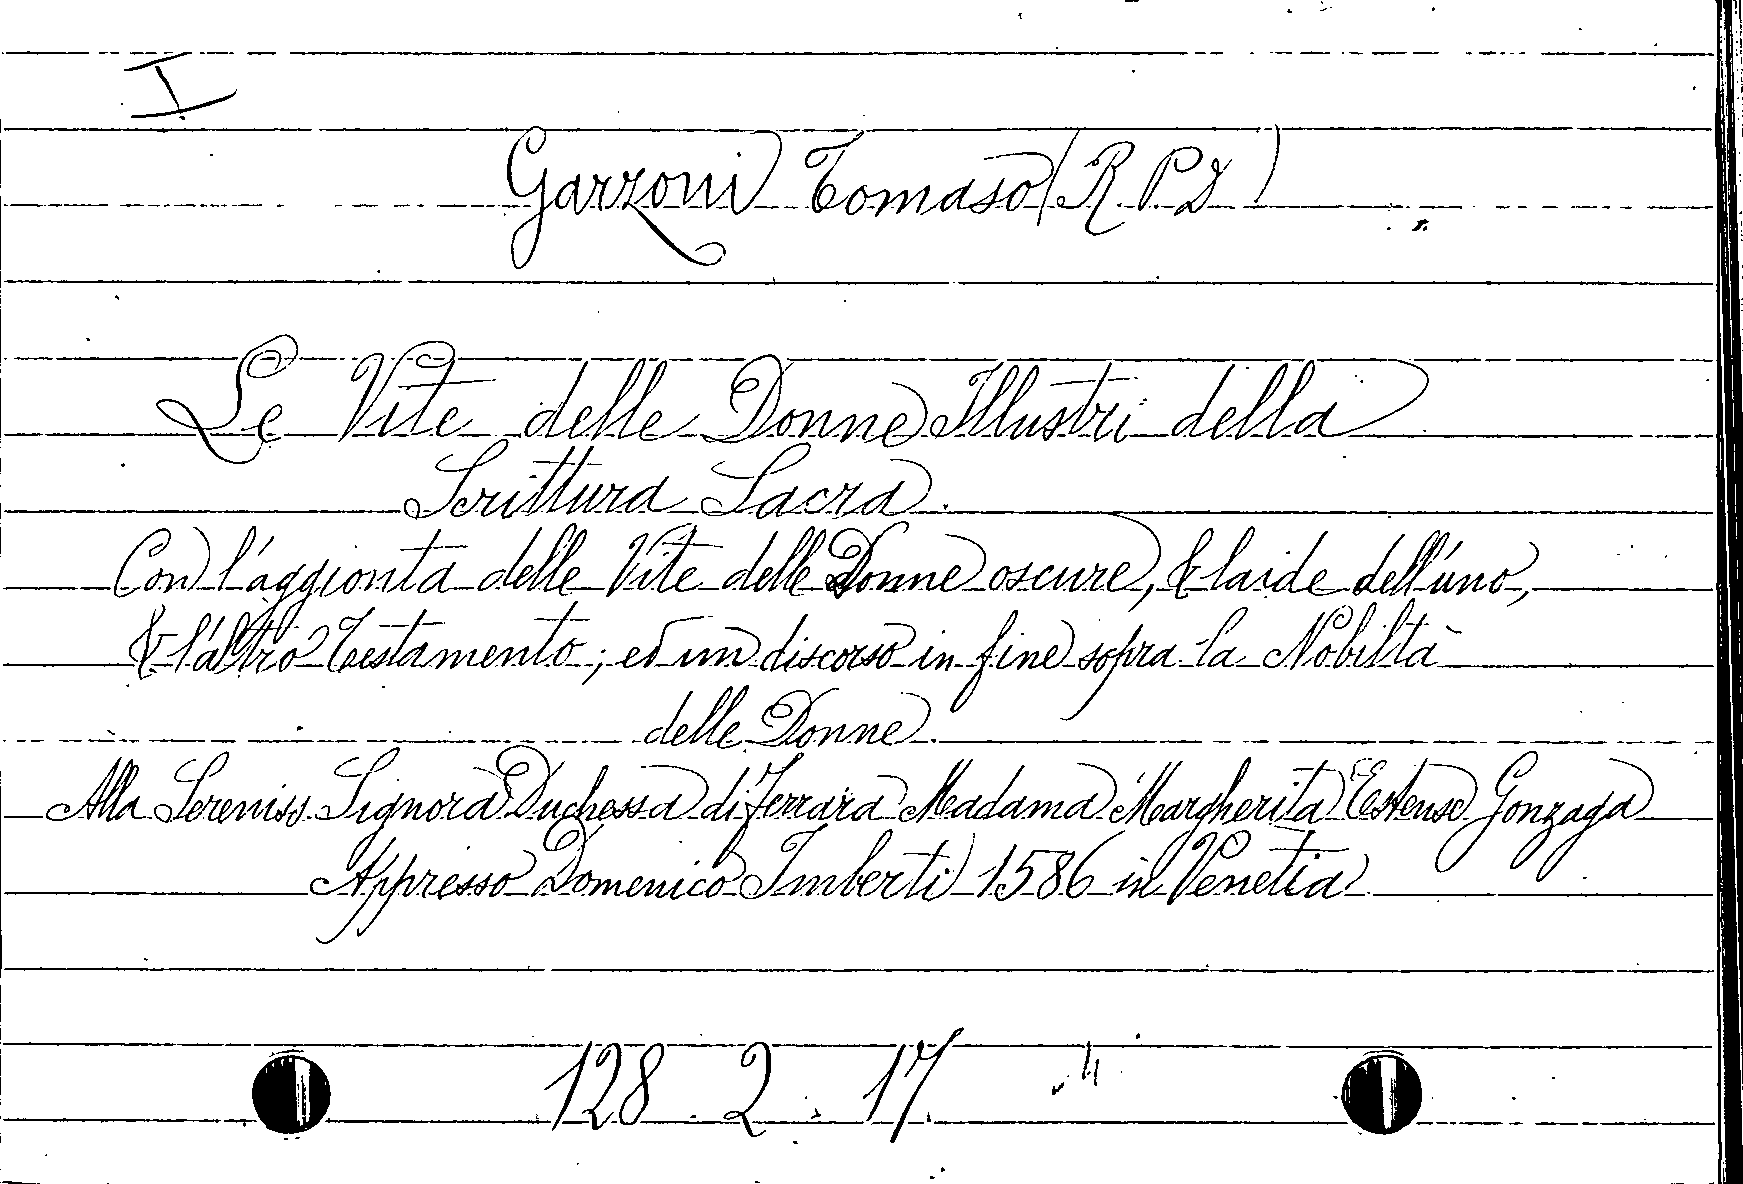 I
Garzoni Tomaso (R. P. D)
Le Vite delle Donne Illustri della
Scrittura Sacra.
Con l'aggionta delle Vite delle Donne oscure, & laide dell'uno,
& l'altro Testamento; ed un discorso in fine sopra la Nobiltà
delle Donne.
Alla Sereniss. Signora Duchessa di Ferrara Madama Margherita Estense Gonzaga
Appresso Domenico Imberti 1586 in Venetia
128. 2. 17.